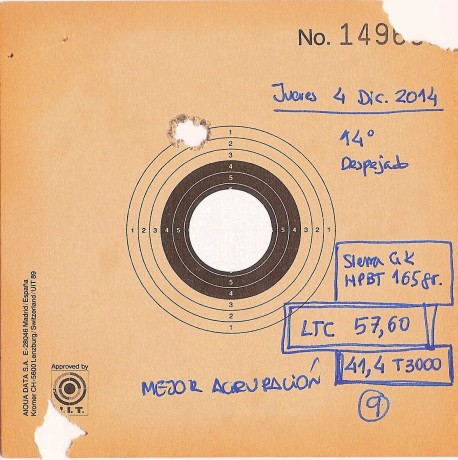 No. 1496
Jueves 4 Dic. 2014
14°
Despejado
1
2
3
4
5
1 2 3 4 5 5 4 3 2 1
5
4
3
2
1
Sierra GK
HPBT 165gr.
LTC 57,60
41,4 T3000
MEJOR AGRUPACIÓN
9
AIQUA DATA S.A. E-28046 Madrid/España
Kromer CH-5600 Lenzburg/Switzerland/UIT 89
Approved by
U.I.T.